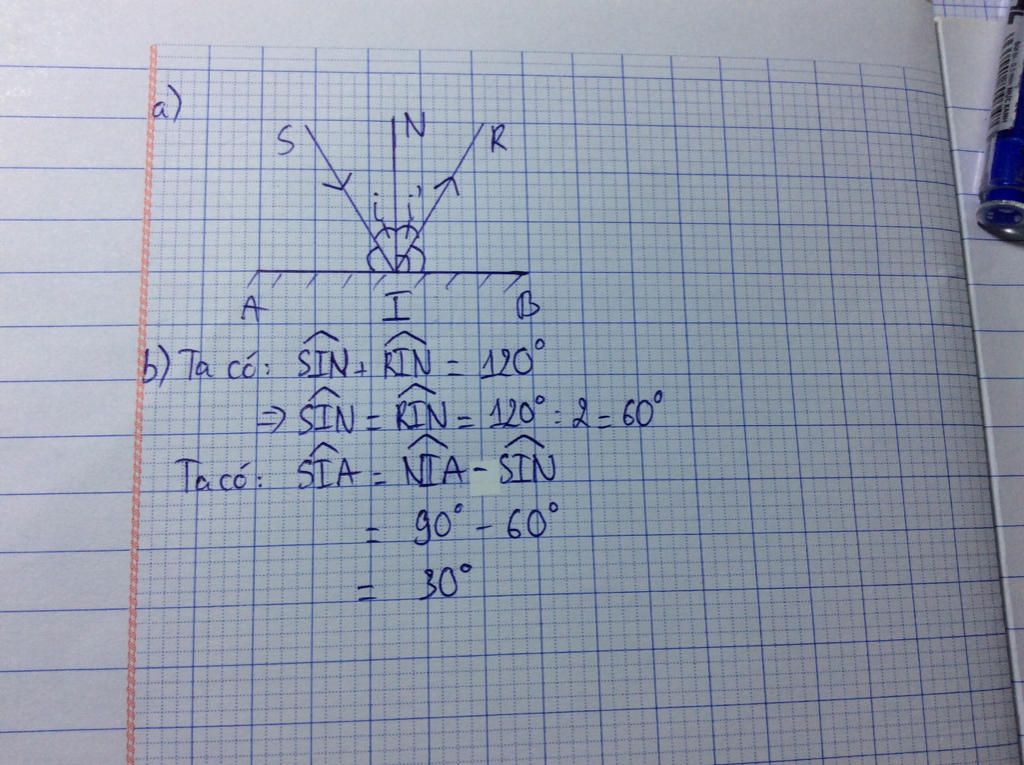 a)
S N R
i i'
A I B
b) Ta có: SIN + RIN = 120°
⇒ SIN = RIN = 120° : 2 = 60°
Ta có: SIA = NIA - SIN
= 90° - 60°
= 30°